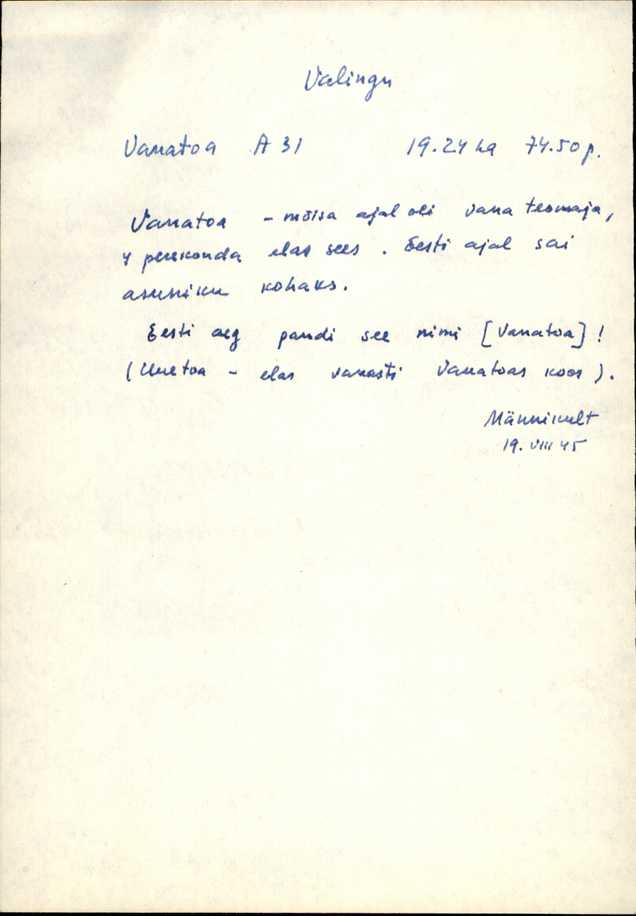 Valingu
Vanatoa A 31 19.24 ha 74.50 p.
Vanatoa - mõisa ajal oli vana teomaja,
4 perekonda elas sees. Eesti ajal sai
asuniku kohaks.
Eesti aeg pandi see nimi [Vanatoa]!
(Uuetoa - elas vanasti Vanatoas koos).
Männikult
19. VIII 45